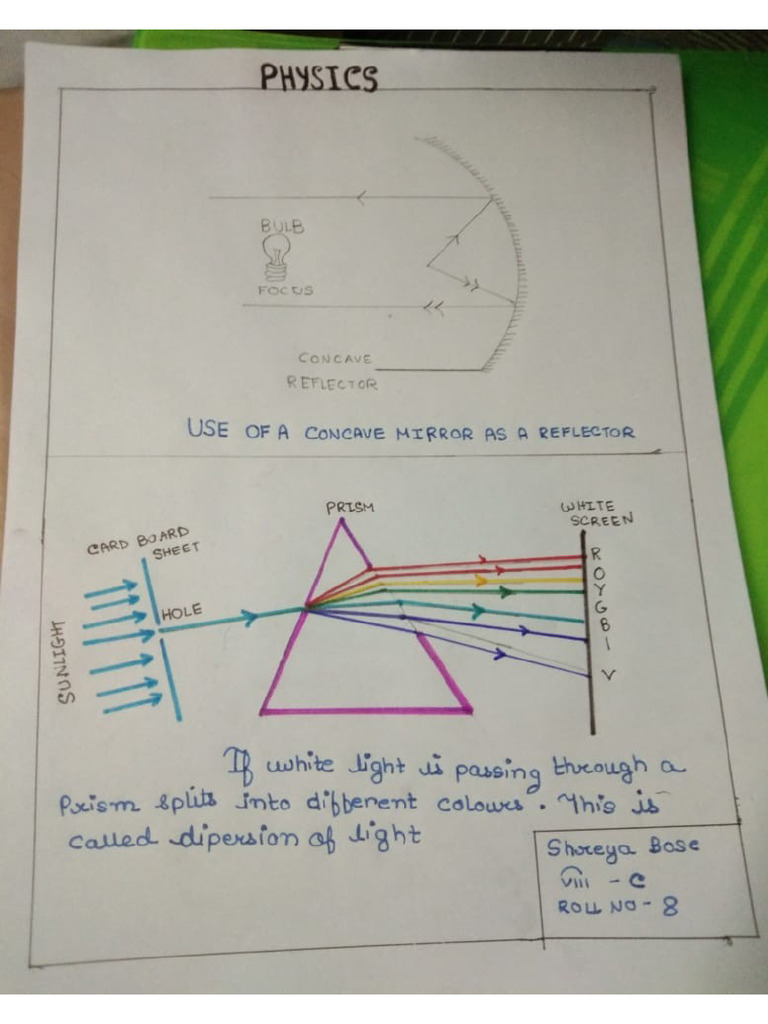 PHYSICS
BULB
FOCUS
CONCAVE
REFLECTOR
USE OF A CONCAVE MIRROR AS A REFLECTOR
PRISM
WHITE
SCREEN
CARD BOARD
SHEET
HOLE
SUNLIGHT
R
O
Y
G
B
I
V
If white light is passing through a
Prism splits into different colours. This is
called dipersion of light
Shreya Bose
VIII - C
ROLL NO - 8